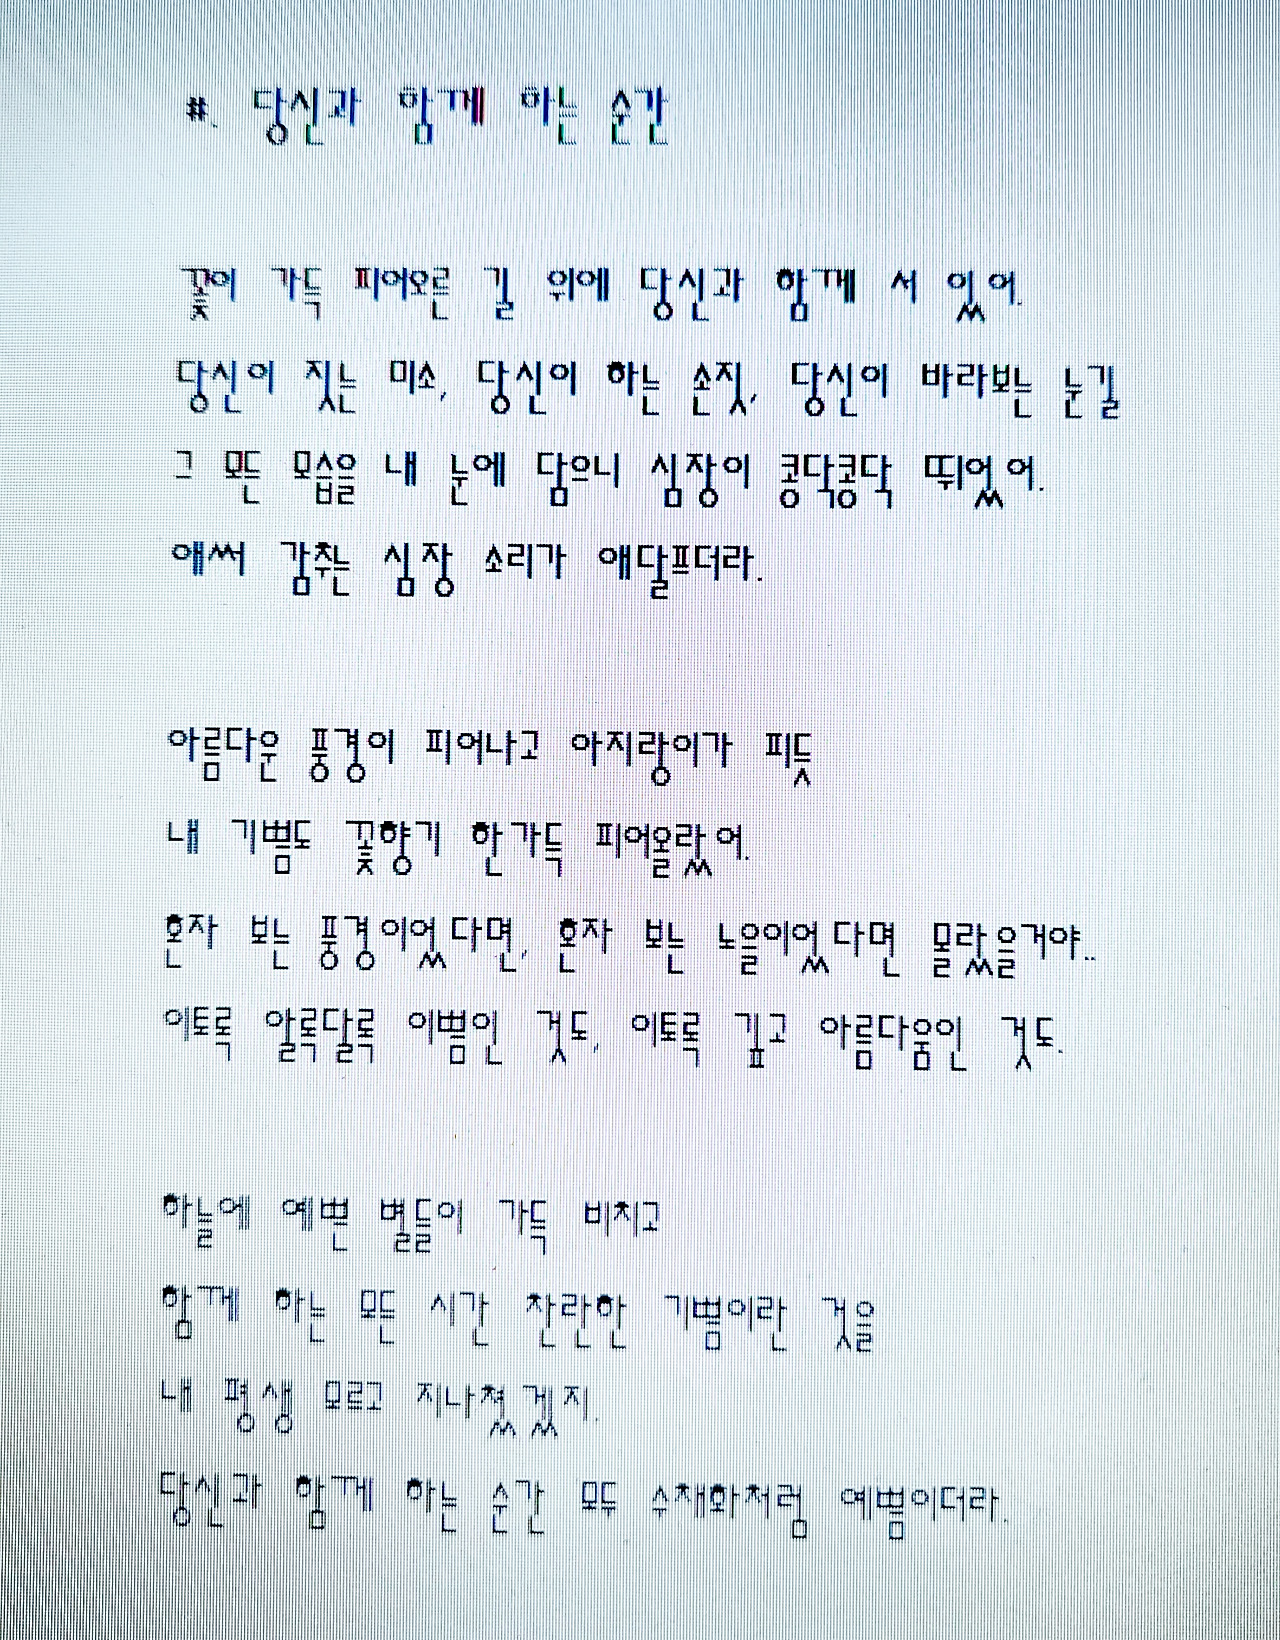 #. 당신과 함께 하는 순간
꽃이 가득 피어오른 길 위에 당신과 함께 서 있어.
당신이 짓는 미소, 당신이 하는 손짓, 당신이 바라보는 눈길
그 모든 모습을 내 눈에 담으니 심장이 콩닥콩닥 뛰었어.
애써 감춘는 심장 소리가 애달프더라.
아름다운 풍경이 피어나고 아지랑이가 피듯
내 기쁨도 꽃향기 한가득 피어올랐어.
혼자 보는 풍경이었다면, 혼자 보는 노을이었다면 몰랐을거야..
이토록 알록달록 이쁨인 것도, 이토록 깊고 아름다움인 것도.
하늘에 예쁜 별들이 가득 비치고
함께 하는 모든 시간 찬란한 기쁨이란 것을
내 평생 모르고 지나쳤겠지.
당신과 함께 하는 순간 모두 수채화처럼 예쁨이더라.